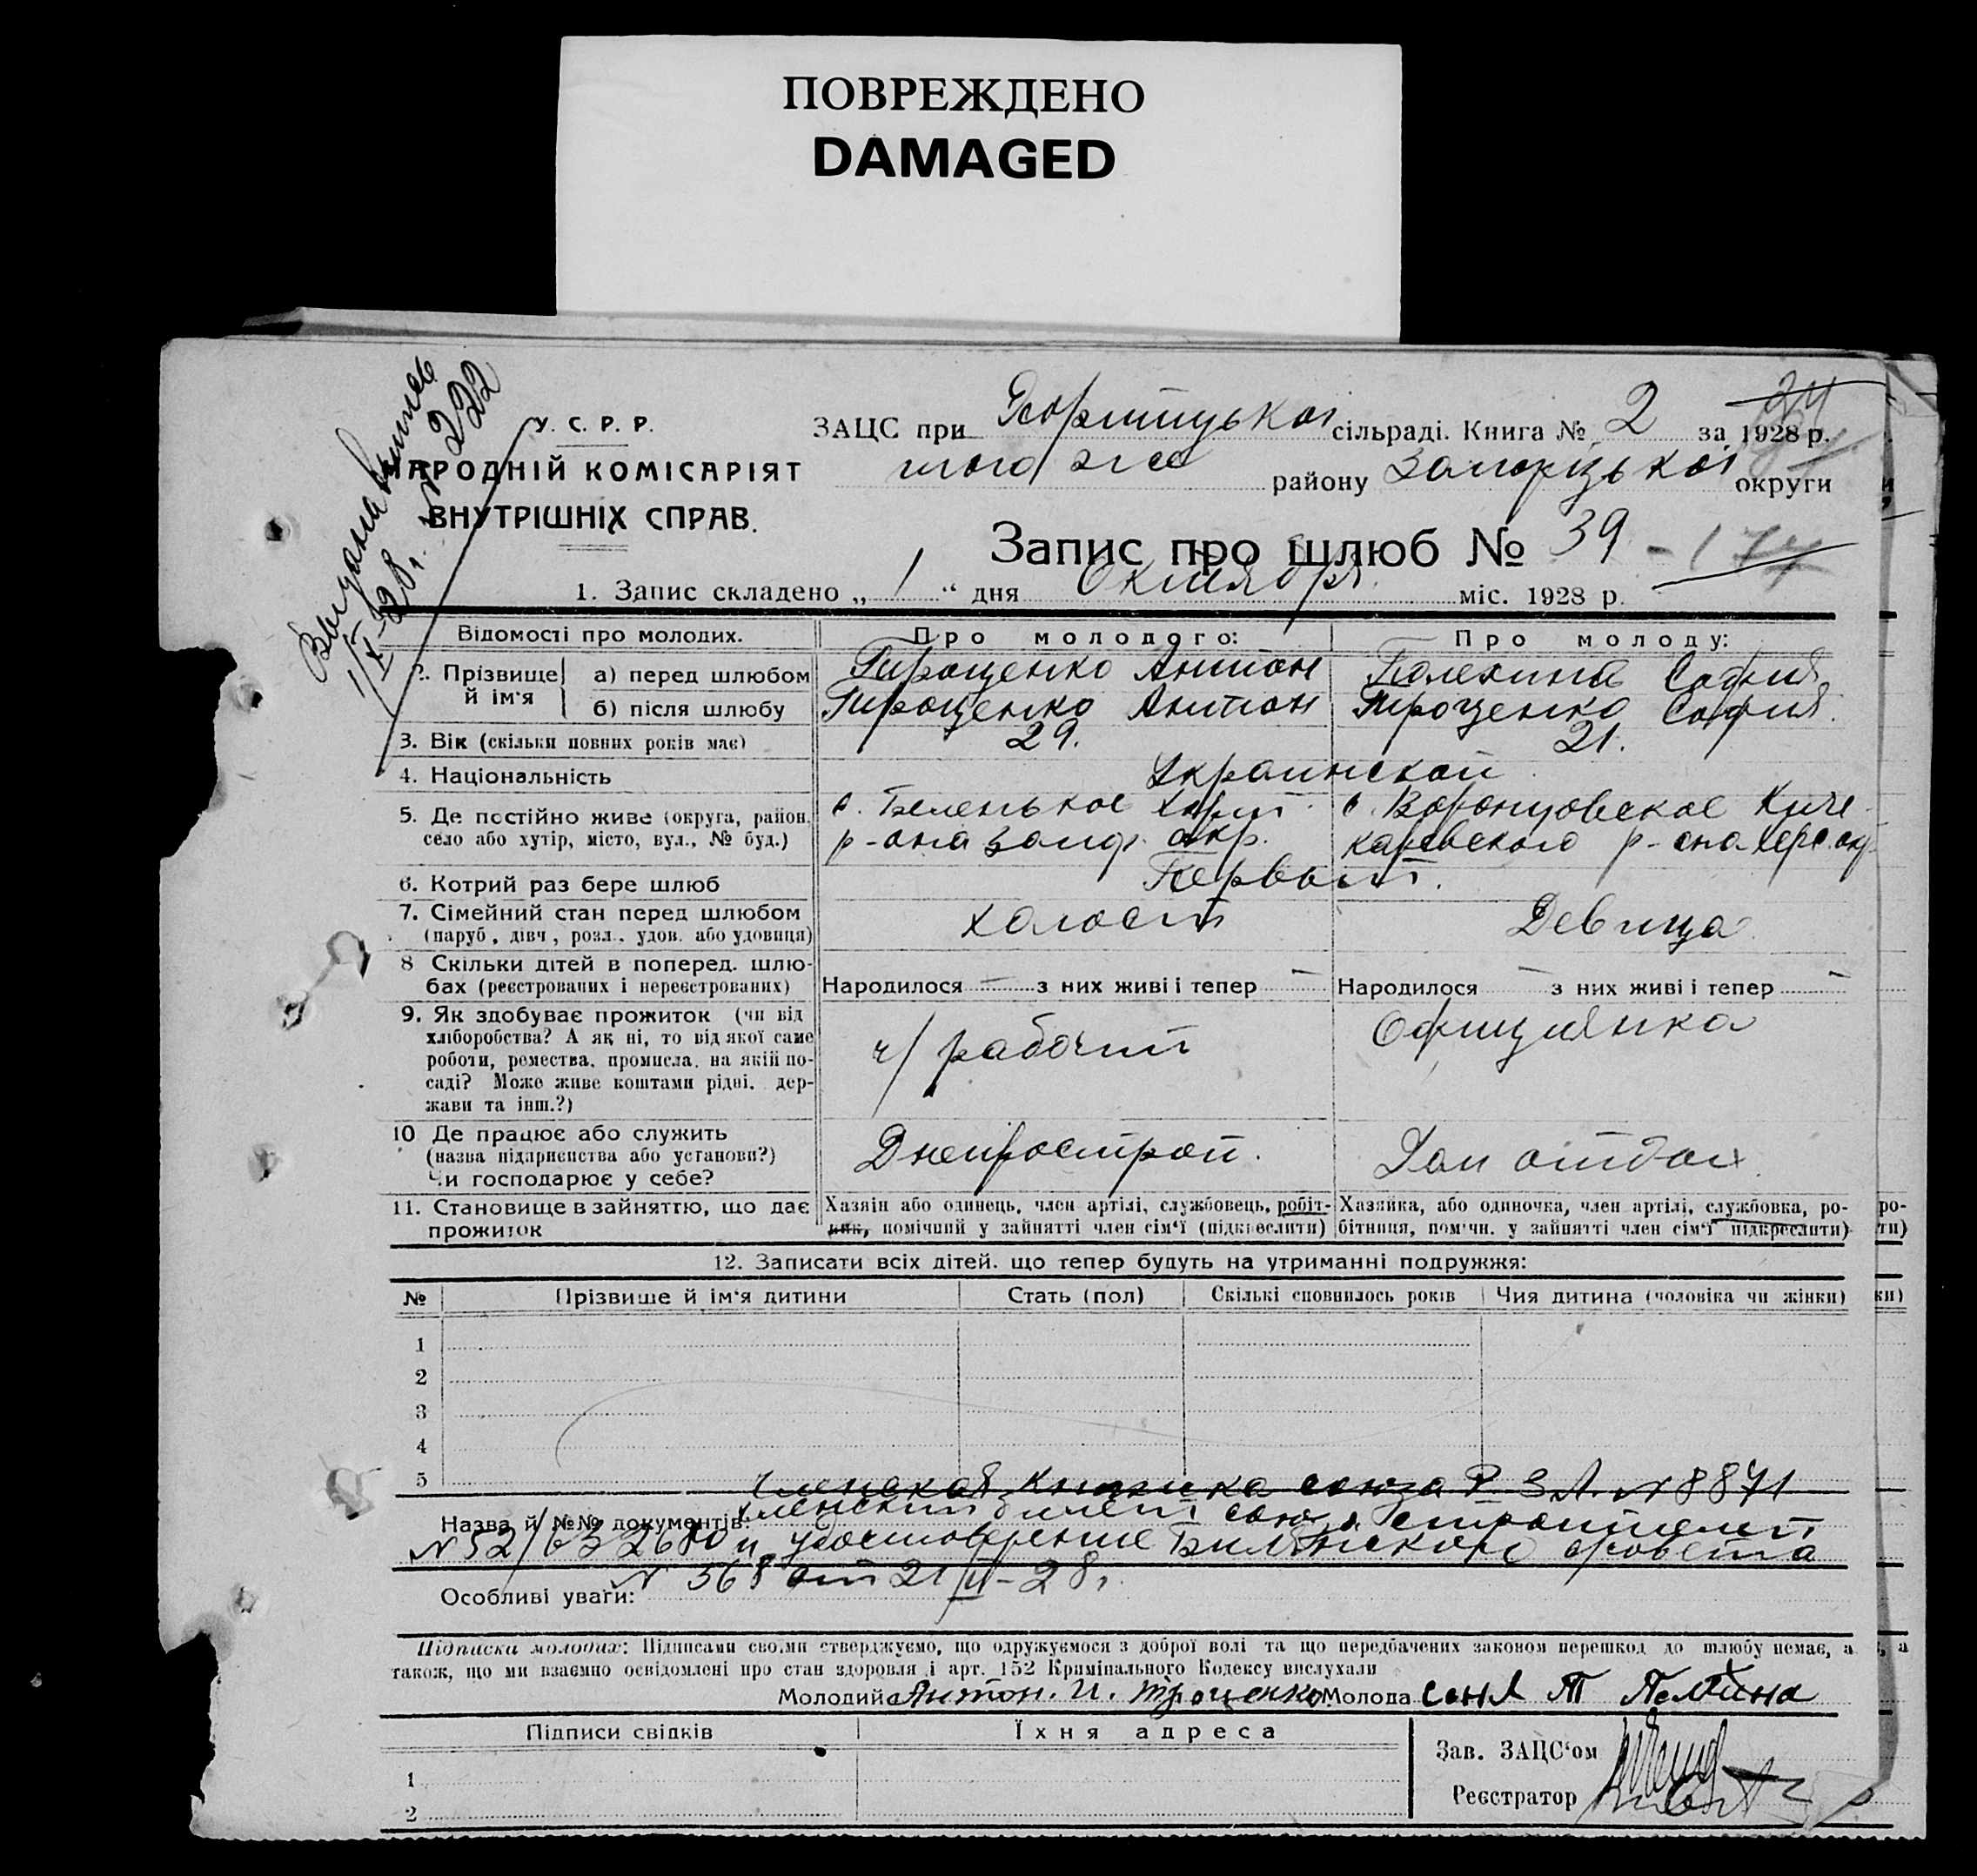 ПОВРЕЖДЕНО
DAMAGED
Выдана выпись
1/X-28 г. № 222
У. С. Р. Р.
НАРОДНІЙ КОМІСАРІЯТ
ВНУТРІШНІХ СПРАВ.
ЗАЦС при Хортицькоі сільраді. Книга № 2 за 1928 р.
того ж району Запорізькоі округи
Запис про шлюб № 39 - 174
1. Запис складено „ 1 “ дня Октября міс. 1928 р.
Відомості про молодих. Про молодого: Про молоду:
2. Прізвище й ім'я
а) перед шлюбом Троценко Антон София
б) після шлюбу Троценко Антон Троценко София.
3. Вік (скільки повних років має) 29. 21.
4. Національність Украинской
5. Де постійно живе (округа, район, село або хутір, місто, вул., № буд.)
с. Беленькое Хорт. р-она Запор. окр.
с. Воронцовское Киче-каевского р-она Херс. окр
6. Котрий раз бере шлюб Первый.
7. Сімейний стан перед шлюбом холост Девица
(паруб., дівч., розл., удов. або удовиця)
8 Скільки дітей в поперед. шлю-
бах (реєстрованих і нереєстрованих) Народилося — з них живі і тепер — Народилося — з них живі і тепер —
9. Як здобуває прожиток (чи від
хліборобства? А як ні, то від якої саме
роботи, ремества, промисла, на якій по-
саді? Може живе коштами рідні, дер-
жави та інш.?)
ч/рабочий Официянка
10 Де працює або служить
(назва підприємства або установи?)
Чи господарює у себе?
Днепрострой. Дом отдых.
11. Становище в зайняттю, що дає
прожиток
Хазяїн або одинець, член артілі, службовець, робіт-
ник, помічний у зайнятті член сім'ї (підкреслити)
Хазяйка, або одиночка, член артілі, службовка, ро-
бітниця, помічн. у зайнятті член сім'ї підкреслити)
12. Записати всіх дітей, що тепер будуть на утриманні подружжя:
№ Прізвище й ім'я дитини Стать (пол) Скількі сповнилось років Чия дитина (чоловіка чи жінки)
1
2
3
4
5
Членская книжка союза Р. З Л. № 8871
Назва й №№ документів: членский билет союза строителей
№ 52/632680 и удостоверение Билянского с/совета
Особливі уваги: № 568 от 21/ -28 г.
Підписка молодих: Підписами своїми стверджуємо, що одружуємося з доброї волі та що передбачених законом перешкод до шлюбу немає, а
також, що ми взаємно освідомлені про стан здоровля і арт. 152 Кримінального Кодексу вислухали
Молодий Антон. И. Троценко Молода Соня Т
Підписи свідків Їхня адреса
1
2
Зав. ЗАЦС'ом
Реєстратор